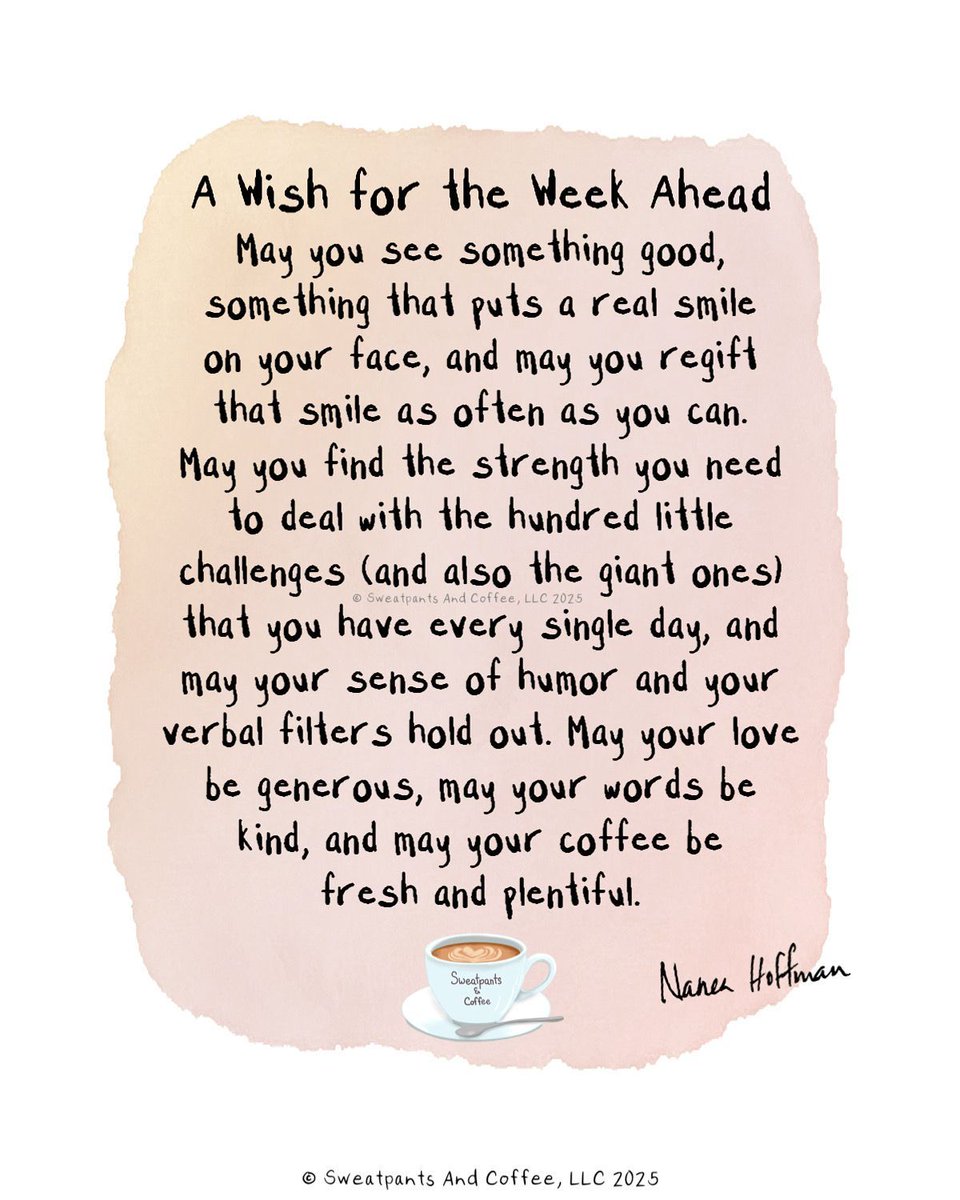 A Wish for the Week Ahead
May you see something good,
something that puts a real smile
on your face, and may you regift
that smile as often as you can.
May you find the strength you need
to deal with the hundred little
challenges (and also the giant ones)
© Sweatpants And Coffee, LLC 2025
that you have every single day, and
may your sense of humor and your
verbal filters hold out. May your love
be generous, may your words be
kind, and may your coffee be
fresh and plentiful.
Sweatpants
&
Coffee
Nanea Hoffman
© Sweatpants And Coffee, LLC 2025